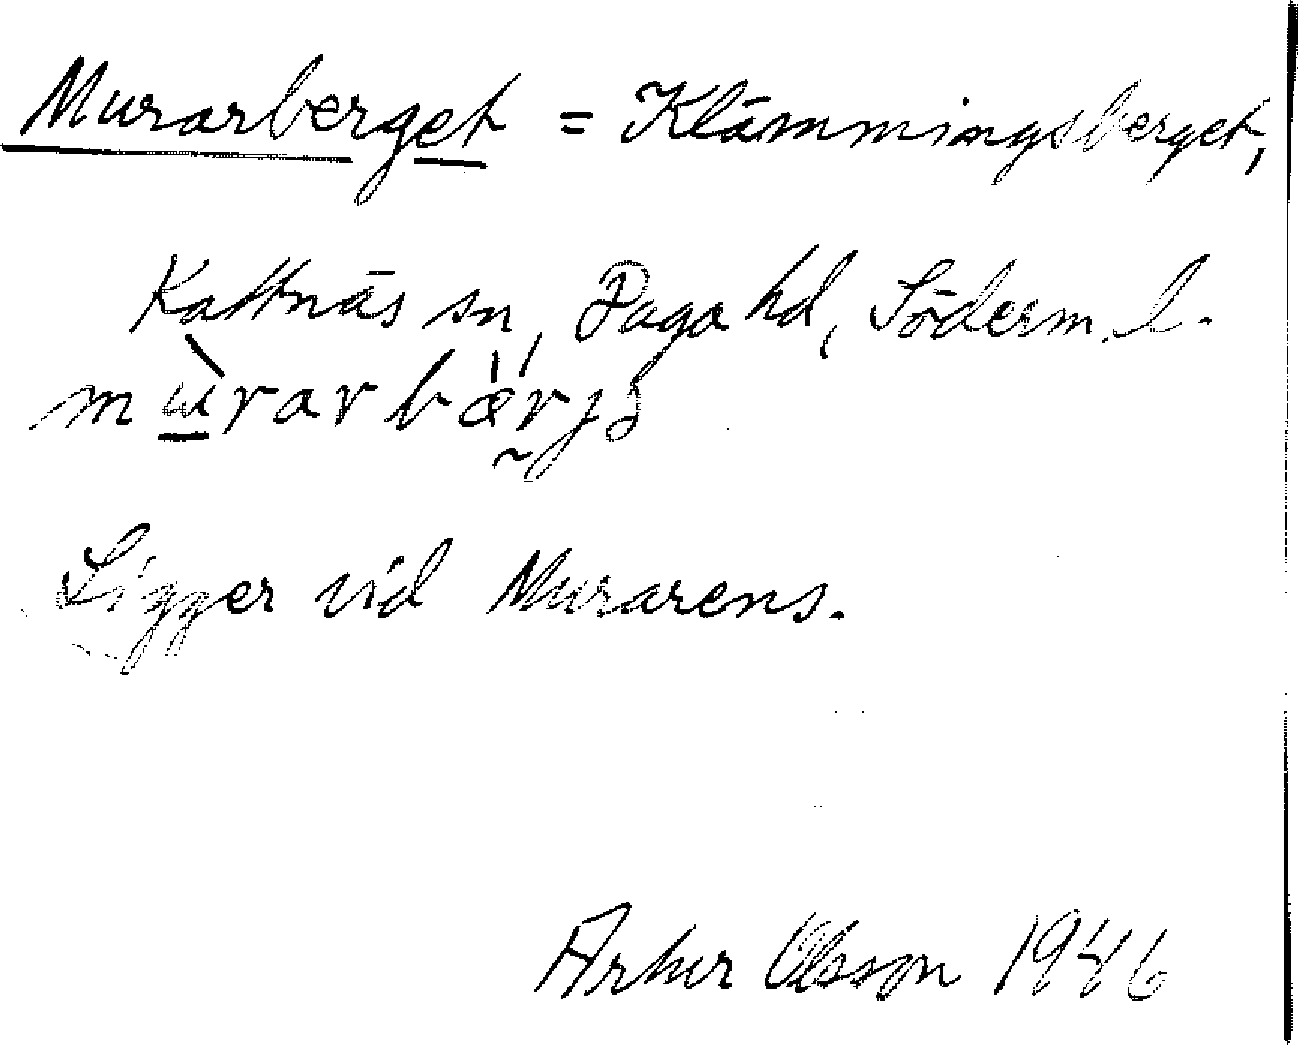 Murarberget = Klämmingsberget,
Kattnäs sn, Daga hd, Söderm. l.
mùrarbärjə
Ligger vid Murarens.
Artur Olsson 1946